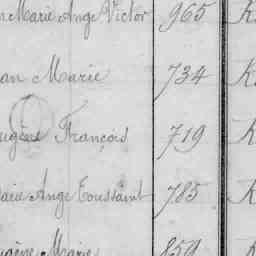 n Marie Ange Victor 965 K
an Marie 734 K
ugène François 719 K
arie Ange Toussaint 785 K
ugène Marie 859 K